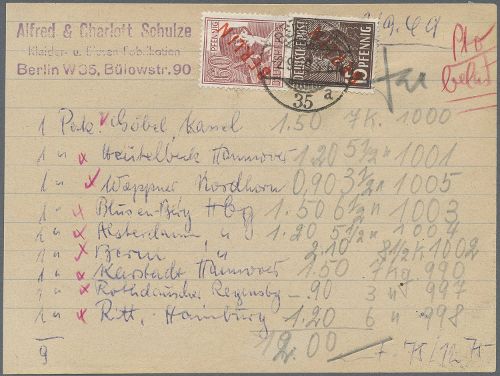 Alfred & Charlott Schulze
Kleider- u. Blusen-Fabrikation
Berlin W 35, Bülowstr. 90
60 PFENNIG DEUTSCHE POST BERLIN
PFENNIG BERLIN
35 a
1 Pak. Göbel, Kassel 1.50 7 K. 1000
1 " Heutelbeck Hannover 1.20 5 1/2 " 1001
1 " Wappner Nordhorn 0,90 3 1/2 " 1005
1 " Blusen-Berg Hbg 1.50 6 1/2 " 1003
1 " Alsterdamm " 1.20 5 1/2 " 1004
1 " Berni " 2.10 8 1/2 K 1002
1 " Karstadt Hannover 1.50 7 Kg 990
1 " Regensbg - 90 3 " 997
1 " Ritt, Hamburg 1.20 6 " 998
9 12.00